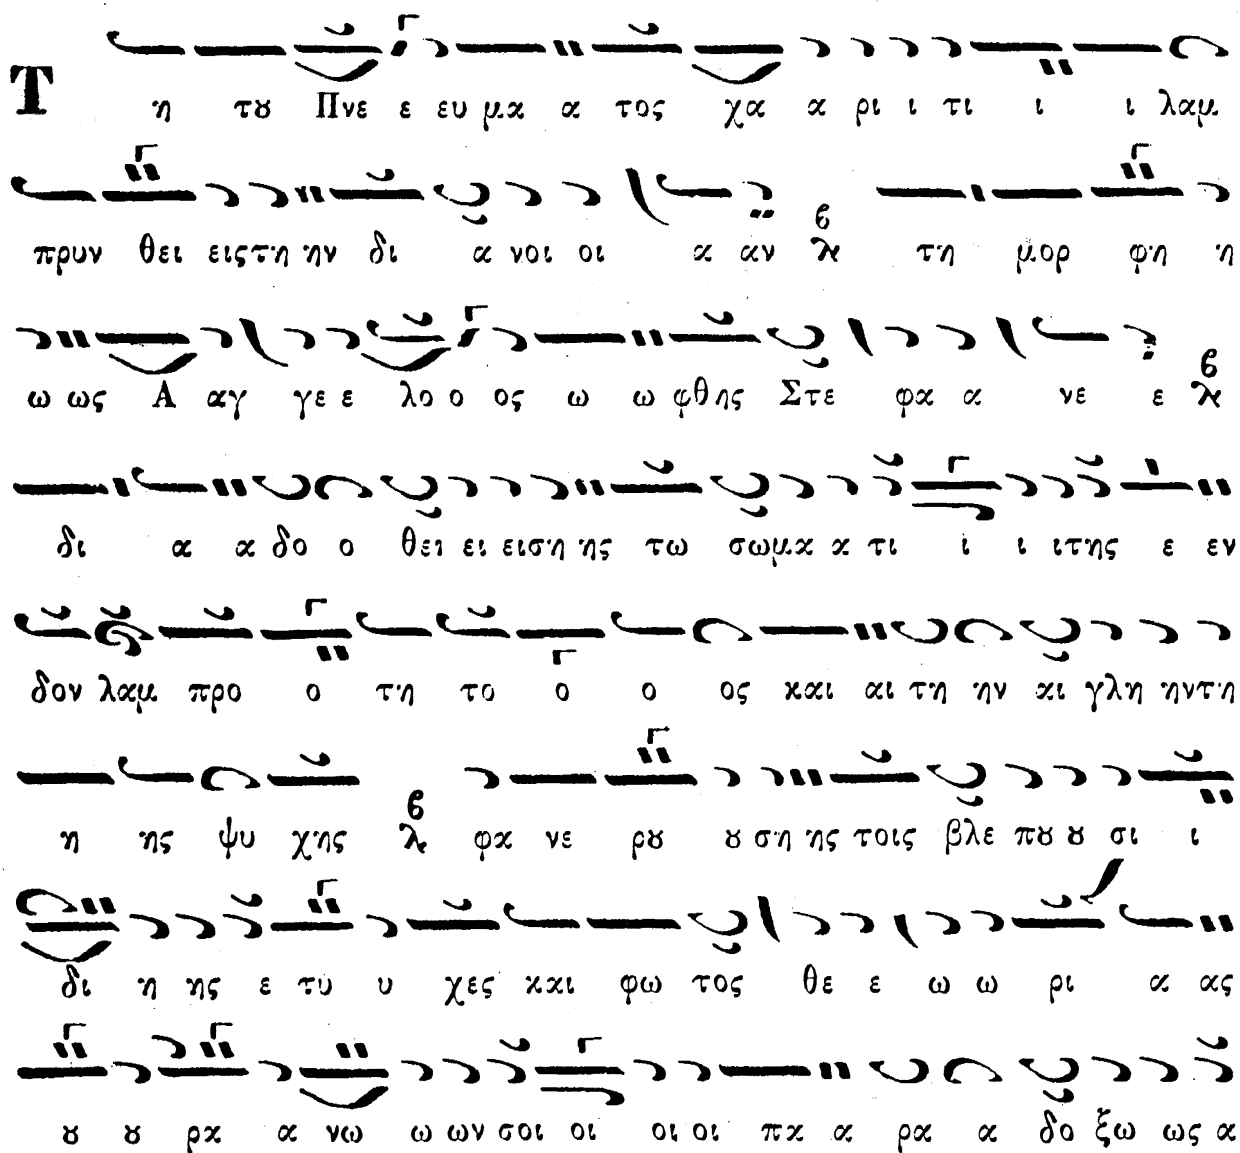 Τ η τȣ Πνε ε ευ μα α τος χα α ρι ι τι ι ι λαμ
πρυν θει εις τη ην δι α νοι οι α αν τη μορ φη η
ω ως Α αγ γε ε λο ο ος ω ω φθης Στε φα α νε ε
δι α α δο ο θει ει ει ση ης τω σωμα α τι ι ι ι της ε εν
δον λαμ προ ο τη το ο ο ος και αι τη ην αι γλη ην τη
η ης ψυ χης φα νε ρȣ ȣ ση ης τοις βλε πȣ ȣ σι ι
δι η ης ε τυ υ χες και φω τος θε ε ω ω ρι α ας
ȣ ȣ ρα α νω ω ων σοι οι οι οι πα α ρα α δο ξω ως α